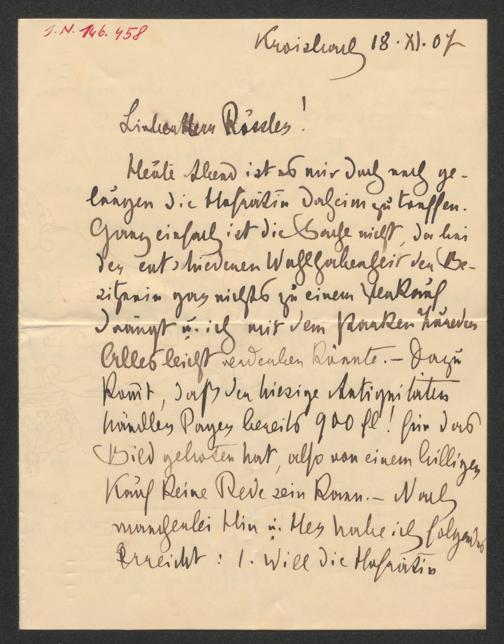 J.N. 146.458
Kroisbach 18.XI.07
Lieber Herr Rössler!
Heute Abend ist es mir doch noch ge-
lungen die Hofrätin daheim zu treffen.
Ganz einfach ist die Sache nicht, da bei
der entschiedenen Wohlhabenheit der Be-
sitzerin gar nichts zu einem Verkauf
drängt u. ich mit dem starken
Alles leicht verderben könnte. – Dazu
kom̄t, daß der hiesige Antiquitäten
händler Payer bereits 900 fl! für das
Bild geboten hat, also von einem billigen
Kauf keine Rede sein kann. – Nach
mancherlei Hin u. Her habe ich folgendes
Erreicht: 1. Will die Hofrätin